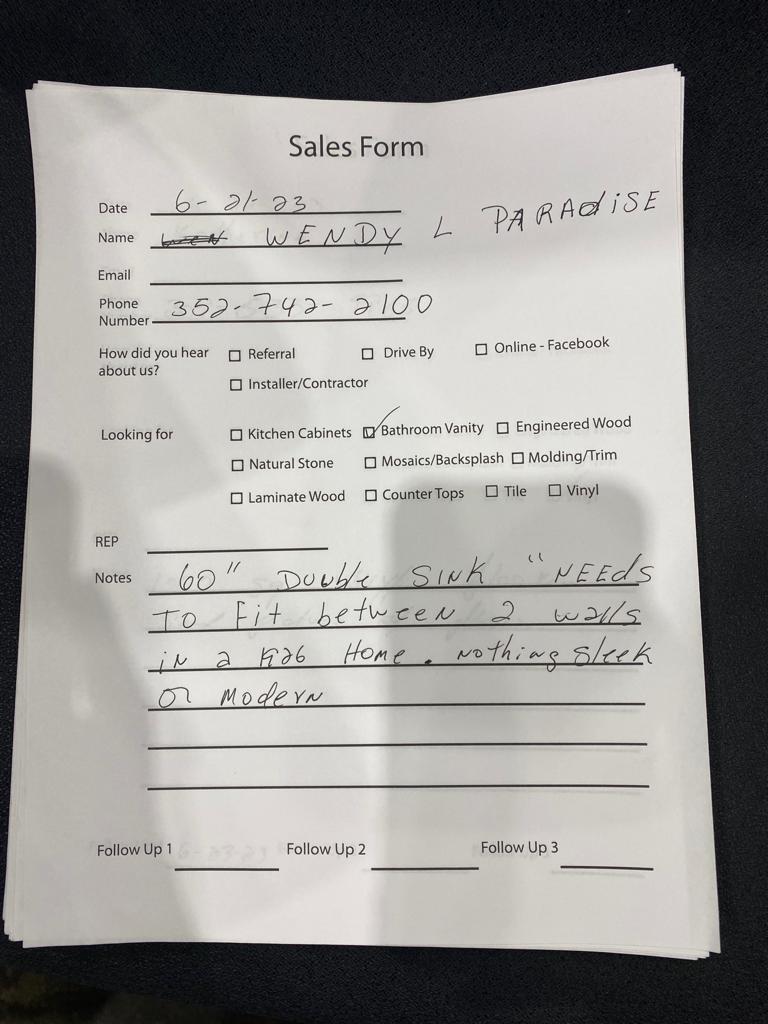 Sales Form
Date 6-21-23
Name WENDY L PARADISE
Email
Phone Number 352-742-2100
How did you hear about us? ☐ Referral ☐ Drive By ☐ Online - Facebook
☐ Installer/Contractor
Looking for ☐ Kitchen Cabinets ☑ Bathroom Vanity ☐ Engineered Wood
☐ Natural Stone ☐ Mosaics/Backsplash ☐ Molding/Trim
☐ Laminate Wood ☐ Counter Tops ☐ Tile ☐ Vinyl
REP
Notes 60" Double SINK "NEEDS
TO Fit between 2 walls
iN a 1926 Home. Nothing Sleek
or Modern
Follow Up 1 Follow Up 2 Follow Up 3